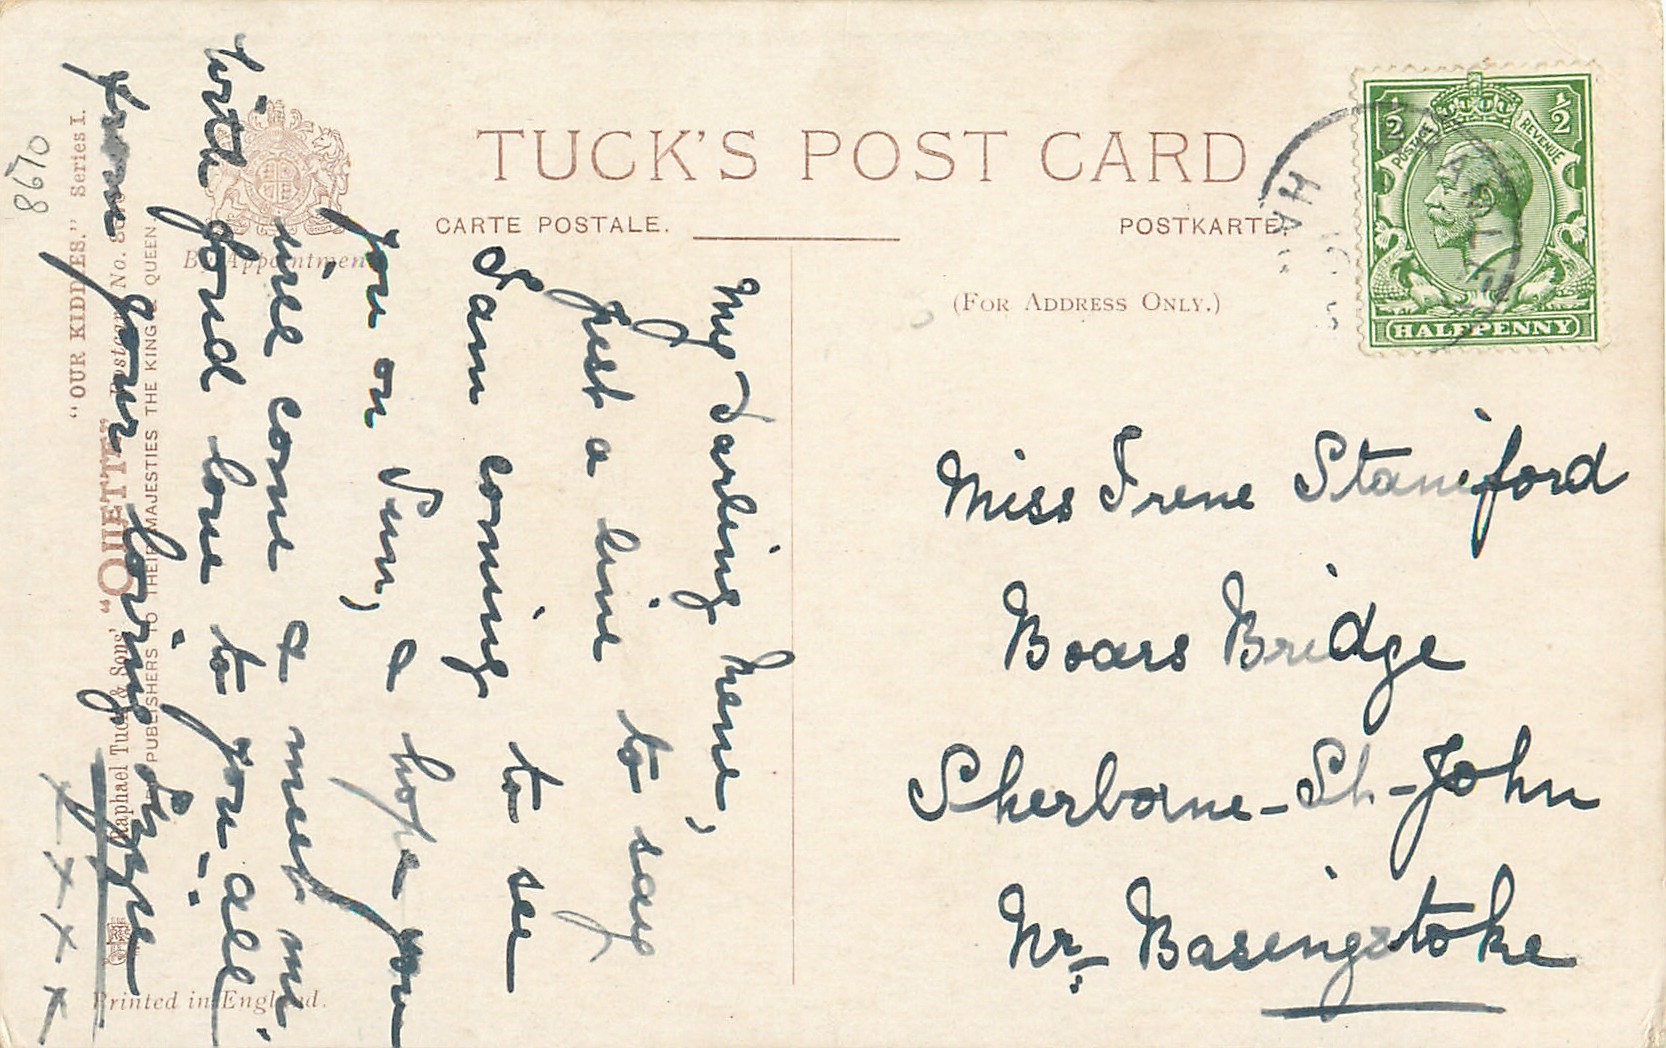 TUCK'S POST CARD
CARTE POSTALE.
POSTKARTE
(FOR ADDRESS ONLY.)
½ ½
POSTAGE REVENUE
HALFPENNY
Miss Irene Staniford
Boars Bridge
Sherborne-St-John
Nr. Basingstoke
My Darling Irene,
Just a line to say
I am coming to see
you on Sun, & hope you
will come & meet me.
With fond love to you all
from your loving
x x x x
By Appointment
"OUR KIDDIES." Series I.
Raphael Tuck & Sons' "OILETTE" Postcard No.
PUBLISHERS TO THEIR MAJESTIES THE KING & QUEEN
Printed in England.
8670